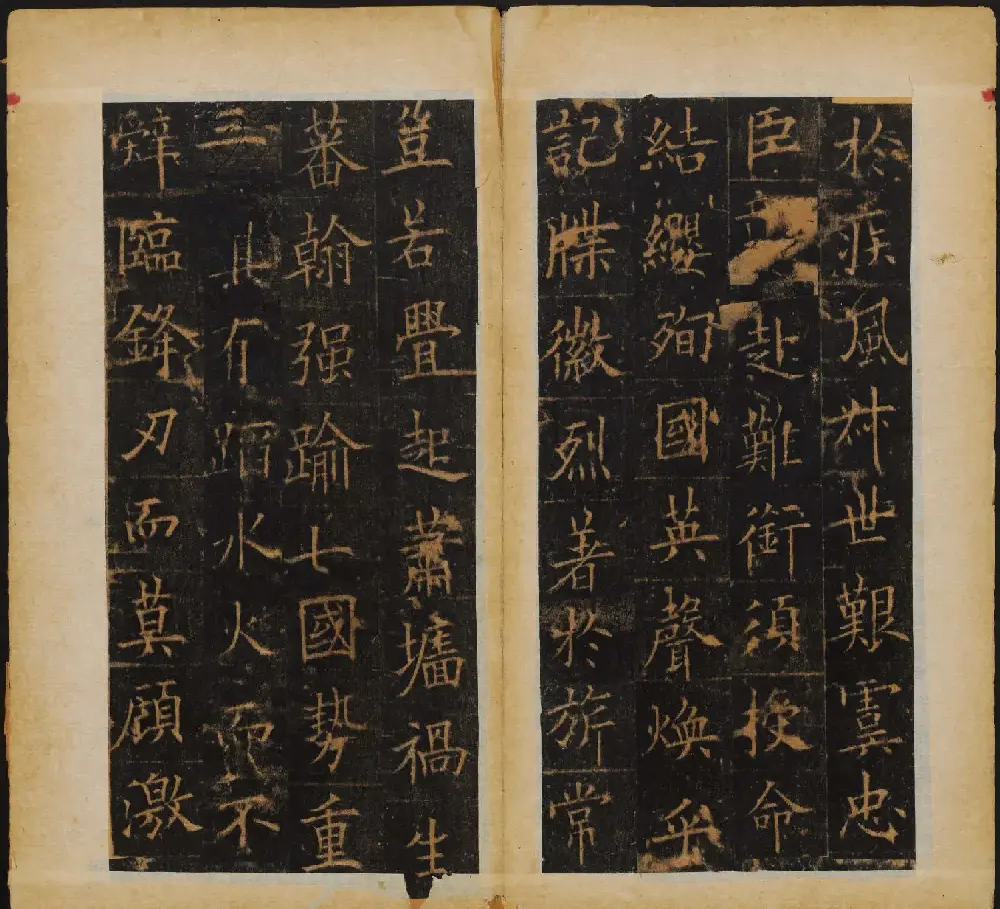 於疾風叔世艱虞忠
臣赴難銜須授命
結纓殉國英聲煥乎
記牒徽烈著於旂常
豈若釁起蕭墻禍生
蕃翰强踰七國勢重
三其有蹈水火而不
辭臨鋒刃而莫顧激